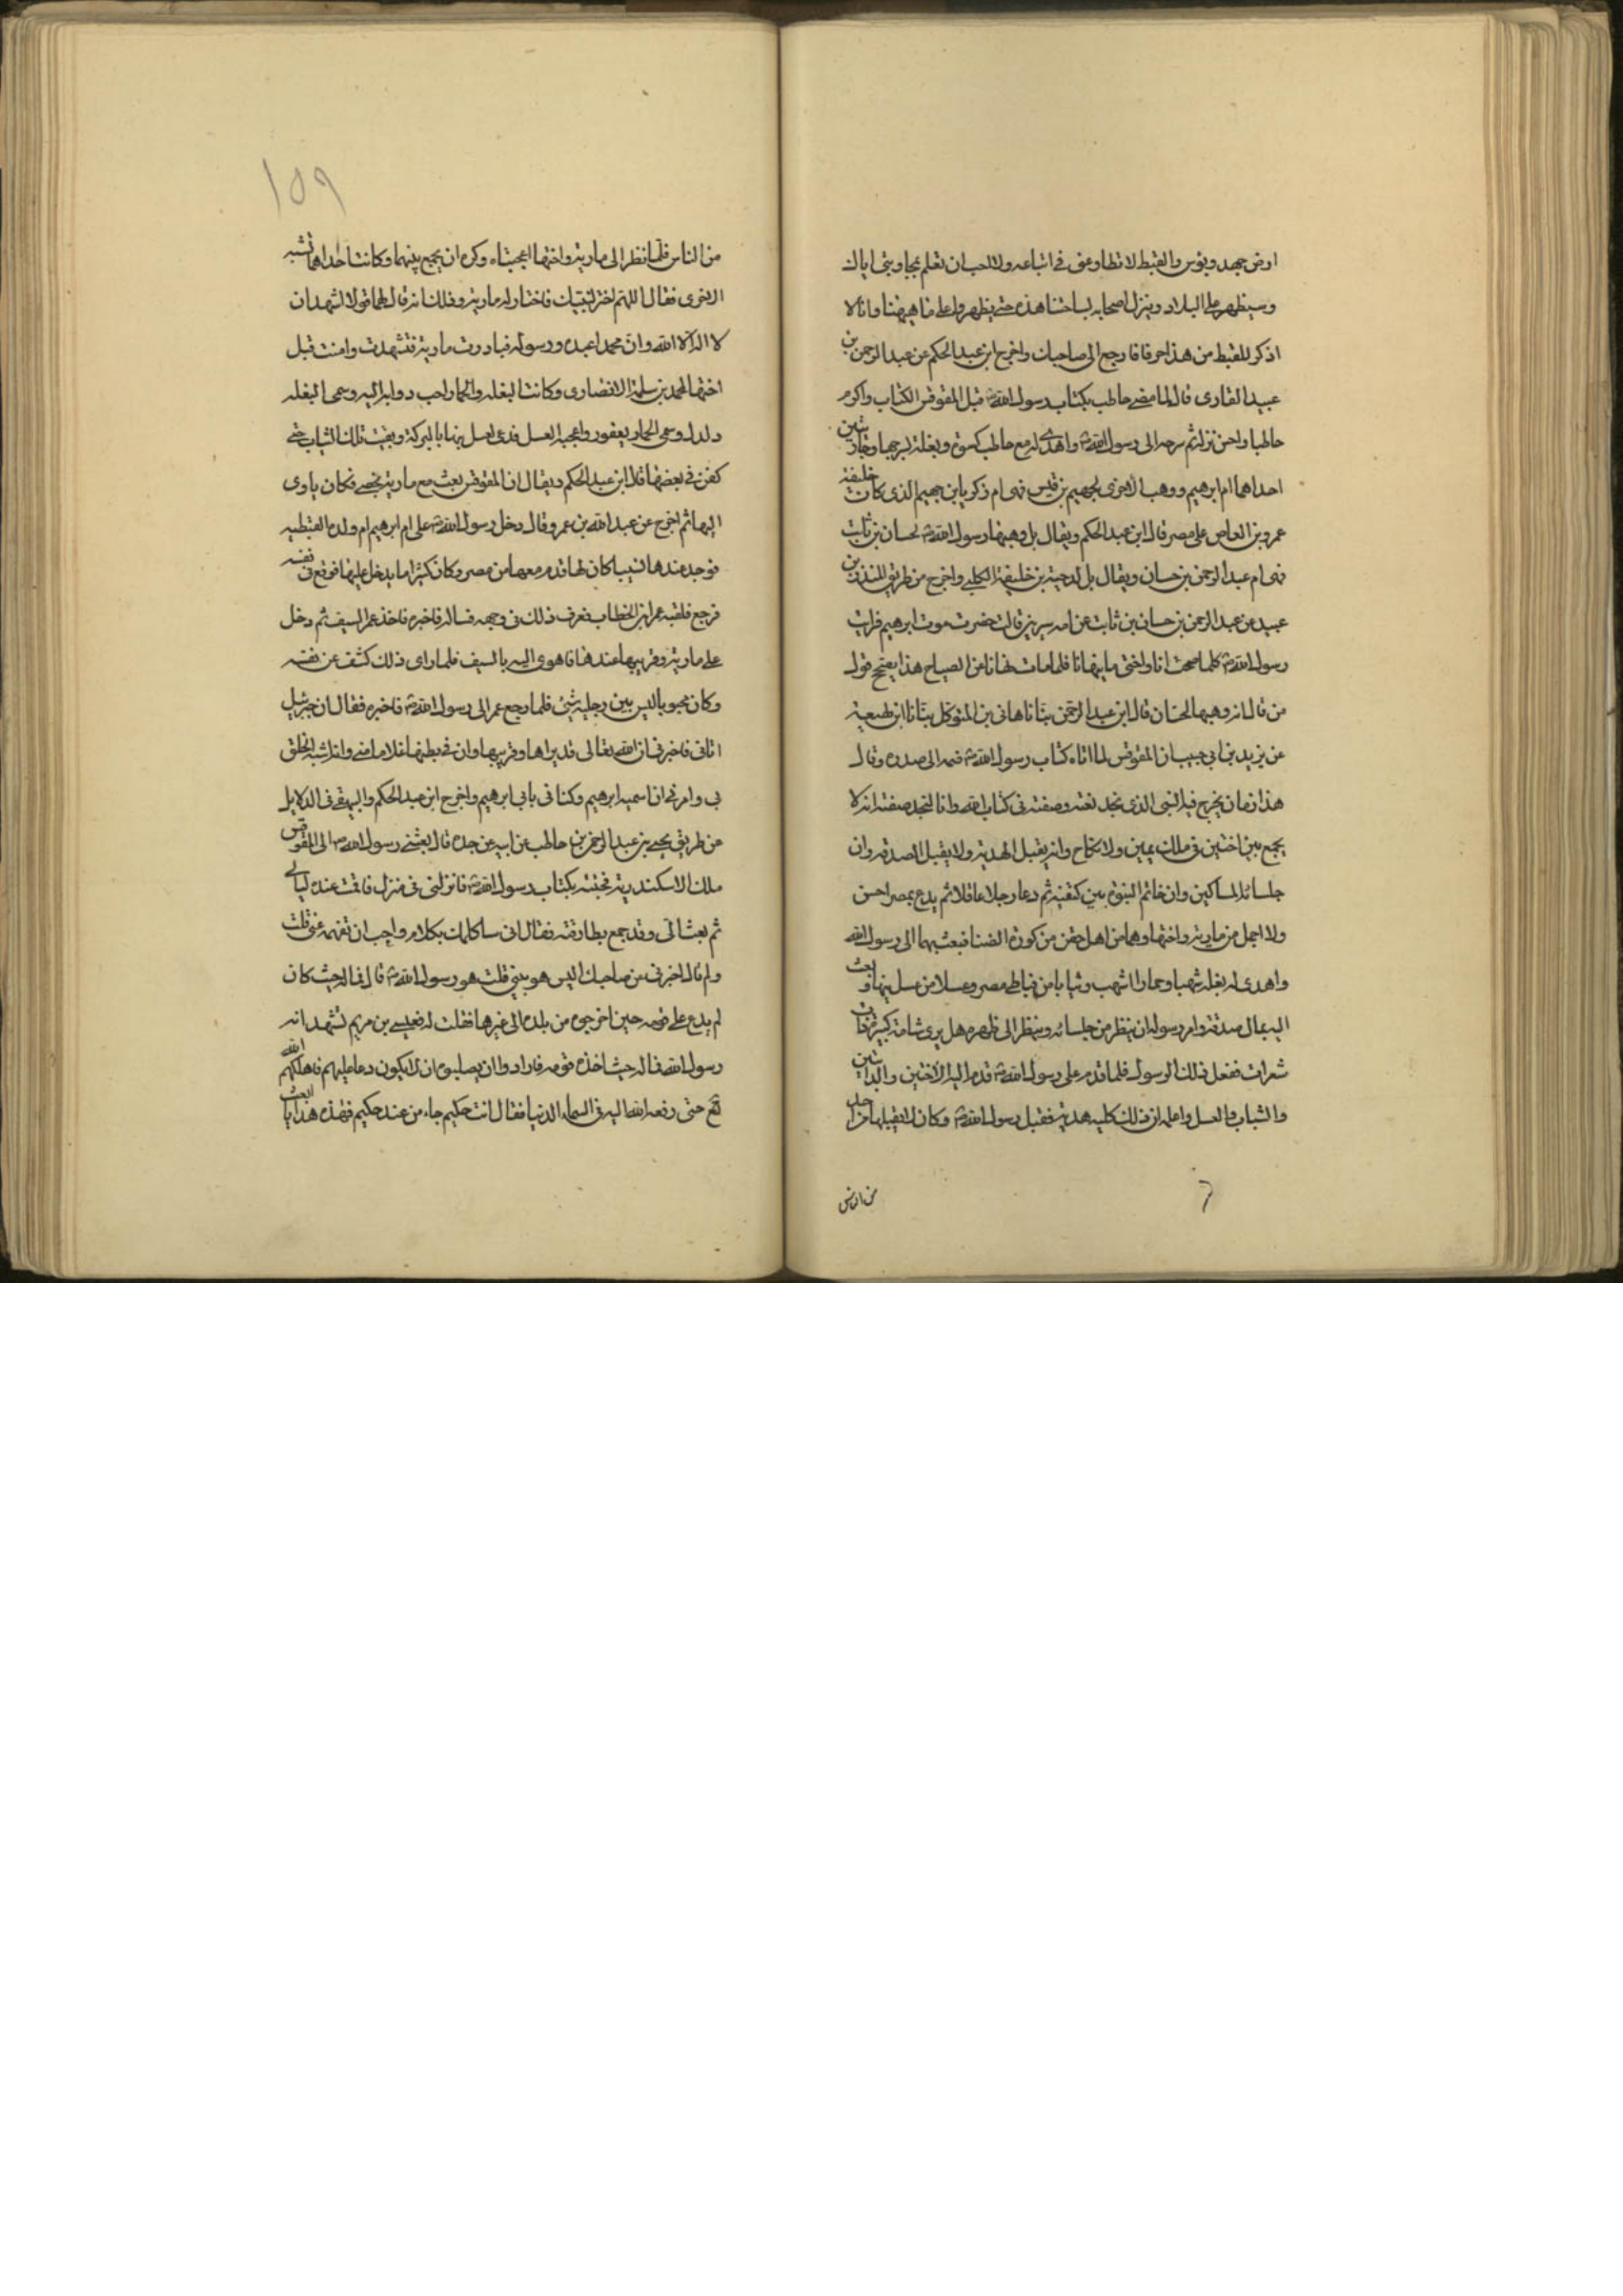 ارض جهد وبؤس والقبط لا تطاوعنى فى اتباعه ولا احب ان تعلم بمحاورتى اياك
وسيظهر على البلاد وينزل اصحابه بساحتنا هذه حتى يظهروا على ما هيهنا وانا لا
اذكر للقبط من هذا حرفا فارجع الى صاحبك واخرج ابن عبد الحكم عن عبد الرحمن بن
عبد القارى قال لما مضى حاطب بكتاب رسول الله قبل المقوقس الكتاب واكرم
حاطبا واحسن نزله ثم سرحه الى رسول الله واهدى له مع حاطب كسوة وبغلة بسرجها وجاريتين
احداهما ام ابرهيم ووهب الاخرى لجهيم بن قيس فهى ام زكريا بن جهيم الذى كان خليفة
عمرو بن العاص على مصر قال ابن عبد الحكم ويقال بل وهبها رسول الله لحسان بن ثابت
فهى ام عبد الرحمن بن حسان ويقال بل لدحية بن خليفة الكلبى واخرج من طريق المنذر بن
عبيد عن عبد الرحمن بن حسان بن ثابت عن امه سيرين قالت حضرت موت ابرهيم فرايت
رسول الله كلما صحت انا واختى ما ينهانا فلما مات نهانا عن الصياح هذا يصحح قول
من قال انه وهبها لحسان قال ابن عبد الرحمن ثنا هانى بن المتوكل ثنا ابن لهيعة
عن يزيد بن ابى حبيب ان المقوقس لما اتاه كتاب رسول الله ضمه الى صدره وقال
هذا زمان يخرج فيه النبى الذى نجد نعته وصفته فى كتاب الله وانا لنجد صفته انه لا
يجمع بين اختين فى ملك يمين ولا نكاح وانه يقبل الهدية ولا يقبل الصدقه وان
جلسائه المساكين وان خاتم النبوة بين كتفيه ثم دعا رجلا عاقلا ثم يدع بمصر احسن
ولا اجمل من مارية واختها وهما من اهل حفن من كورة انصنا فبعث بهما الى رسول الله
واهدى له بغلة شهبا وحمارا اشهب وثيابا من قباطى مصر وعسلا من عسل بنها وبعث
اليه بمال صدقة وامر رسوله ان ينظر من جلسائه وينظر الى ظهره هل يرى شامة كبيرة ذات
شعرات ففعل ذلك الرسول فلما قدم على رسول الله قدم اليه الاختين والدابتين
والثياب والعسل واعلمه ان ذلك كله هدية فقبل رسول الله وكان لا يقبلها من احد
من الناس
من الناس فلما نظر الى مارية واختها اعجبتاه وكره ان يجمع بينهما وكانت احداهما تشبه
الاخرى فقال اللهم اختر لنبيك فاختار له مارية وذلك انه قال لهما قولا نشهد ان
لا اله الا الله وان محمدا عبده ورسوله فبادرت مارية فتشهدت وامنت قبل
اختها لمحمد بن سلمة الانصارى وكانت البغله والحمار احب دوابه اليه وسمى البغله
دلدل وسمى الحمار يعفور واعجبه العسل فدعى لعسل بنها بالبركة وبقيت تلك الثياب حتى
كفن فى بعضها قال ابن عبد الحكم ويقال ان المقوقس بعث مع مارية بخصى فكان ياوى
اليها ثم اخرج عن عبد الله بن عمرو قال دخل رسول الله على ام ابرهيم ام ولده القبطيه
فوجد عندها نسيبا كان لها قدم معها من مصر وكان كثيرا ما يدخل عليها فوقع فى نفسه
فرجع فلقيه عمر بن الخطاب فعرف ذلك فى وجهه فساله فاخبره فاخذ عمر السيف ثم دخل
على مارية وقريبها عندها فاهوى اليه بالسيف فلما راى ذلك كشف عن نفسه
وكان مجبوبا ليس بين رجليه شئ فلما رجع عمر الى رسول الله فاخبره فقال ان جبرئيل
اتانى فاخبرنى ان الله تعالى قد براها وقريبها وان فى بطنها غلاما منى وانه اشبه الخلق
بى وامرنى ان اسميه ابرهيم وكنانى بابى ابرهيم واخرج ابن عبد الحكم والبيهقى فى الدلايل
من طريق يحيى بن عبد الرحمن بن حاطب عن ابيه عن جده قال بعثنى رسول الله الى المقوقس
ملك الاسكندرية فجئته بكتاب رسول الله فانزلنى فى منزل فاقمت عنده ليالى
ثم بعث الى وقد جمع بطارقته فقال انى ساكلمك بكلام واحب ان تفهمه عنى قلت
ولم قال اخبرنى عن صاحبك اليس هو بنبى قلت هو رسول الله قال فما له حيث كان
لم يدع على قومه حين اخرجوه من بلده الى غيرها فقلت له فعيسى بن مريم تشهد انه
رسول الله فما له حيث اخذه قومه فارادوا ان يصلبوه ان لا يكون دعا عليهم فاهلكهم الله
تع حتى رفعه الله اليه فى السماء الدنيا فقال انت حكيم جاء من عند حكيم فهذه هدايا ابعث